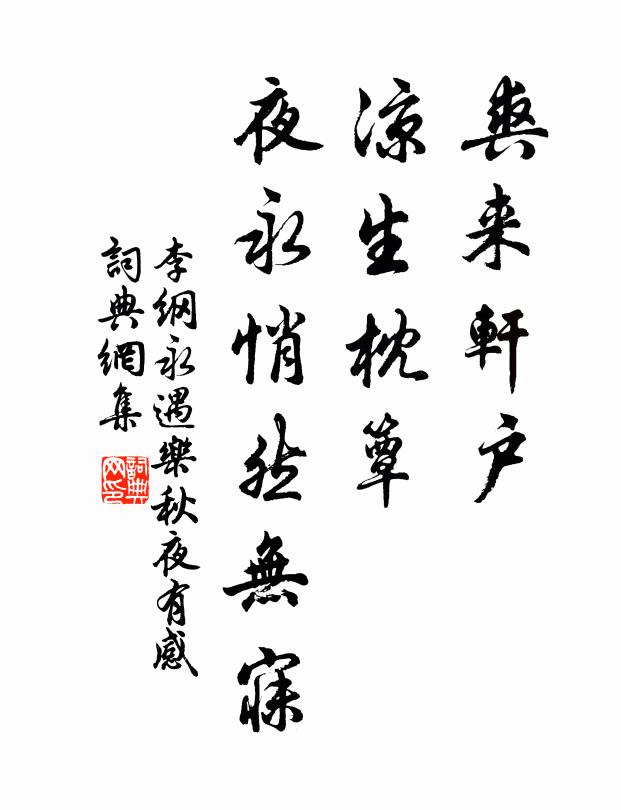 爽来軒户
凉生枕簟
夜永悄然無寐
李纲永遇樂秋夜有感
詞典網集
詞典網印